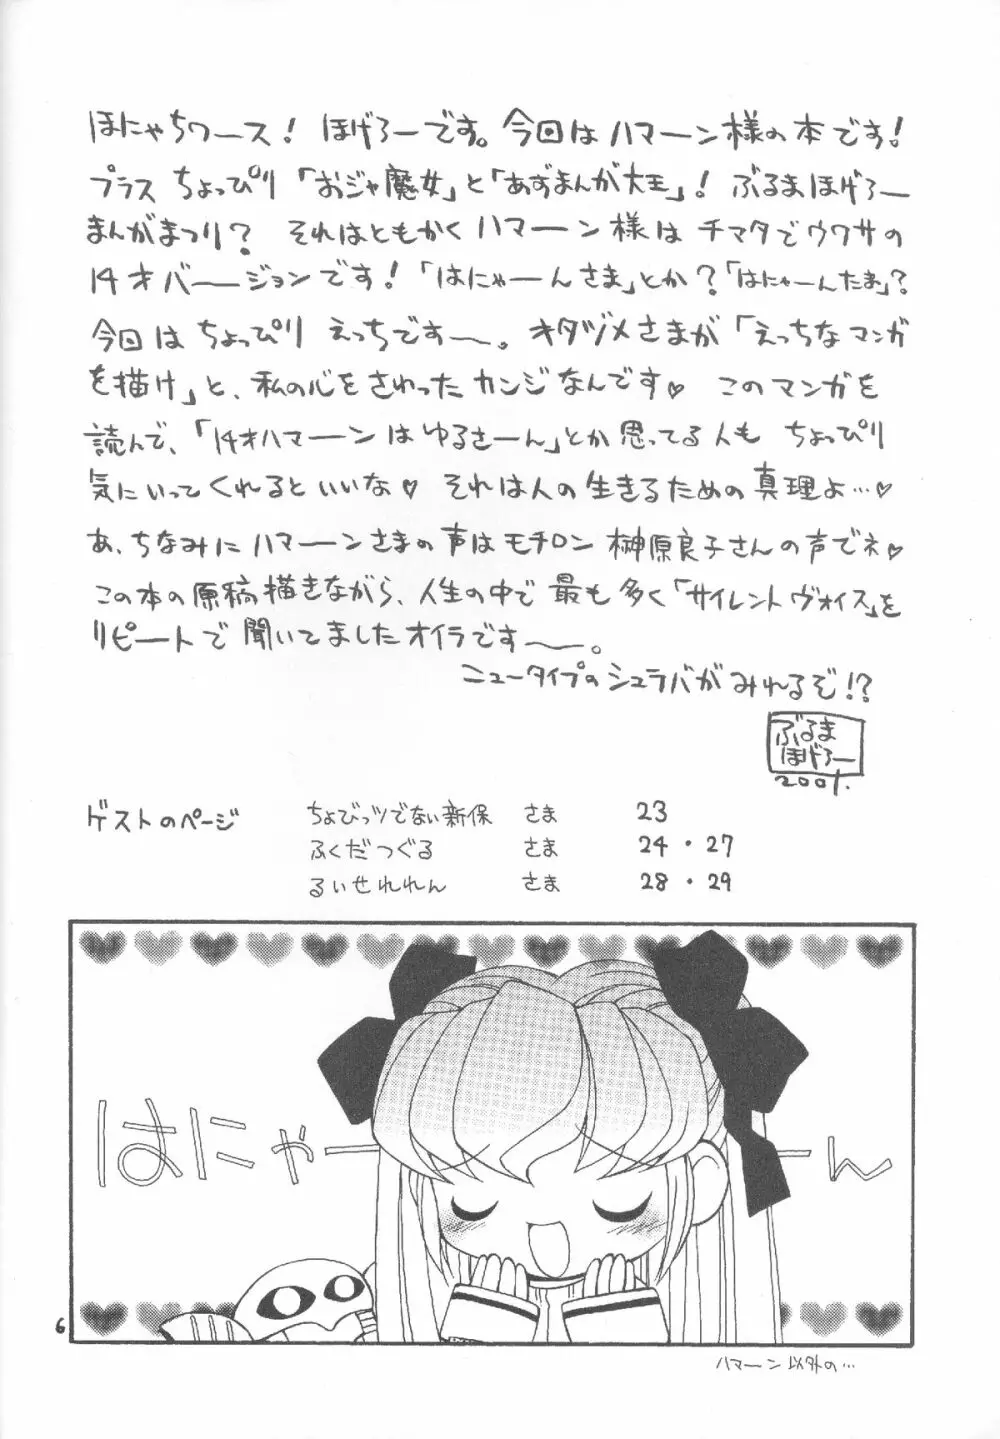 ほにゃちワース! ほげろーです。今回はハマーン様の本です!
プラス ちょっぴり「おジャ魔女」と「あずまんが大王」! ぶるまほげろー
まんがまつり? それはともかくハマーン様はチマタでウワサの
14才バージョンです!「はにゃーんさま」とか?「はにゃーんたま」?
今回はちょっぴり えっちです〜。オタヅメさまが「えっちなマンガ
を描け」と、私の心をさわったカンジなんです♥ このマンガを
読んで、「14才ハマーンはゆるさーん」とか思ってる人も ちょっぴり
気にいってくれるといいな♥ それは人の生きるための真理よ…♥
あ、ちなみにハマーンさまの声はモチロン 榊原良子さんの声でネ♥
この本の原稿描きながら、人生の中で最も多く「サイレントヴォイス」を
リピートで聞いてましたオイラです〜。
ニュータイプのシュラバがみれるぞ!?
ぶるま
ほげろー
2001.
ゲストのページ ちょびっツでない新保 さま 23
ふくだつぐる さま 24・27
るいせれれん さま 28・29
はにゃーーん
6
ハマーン以外の…